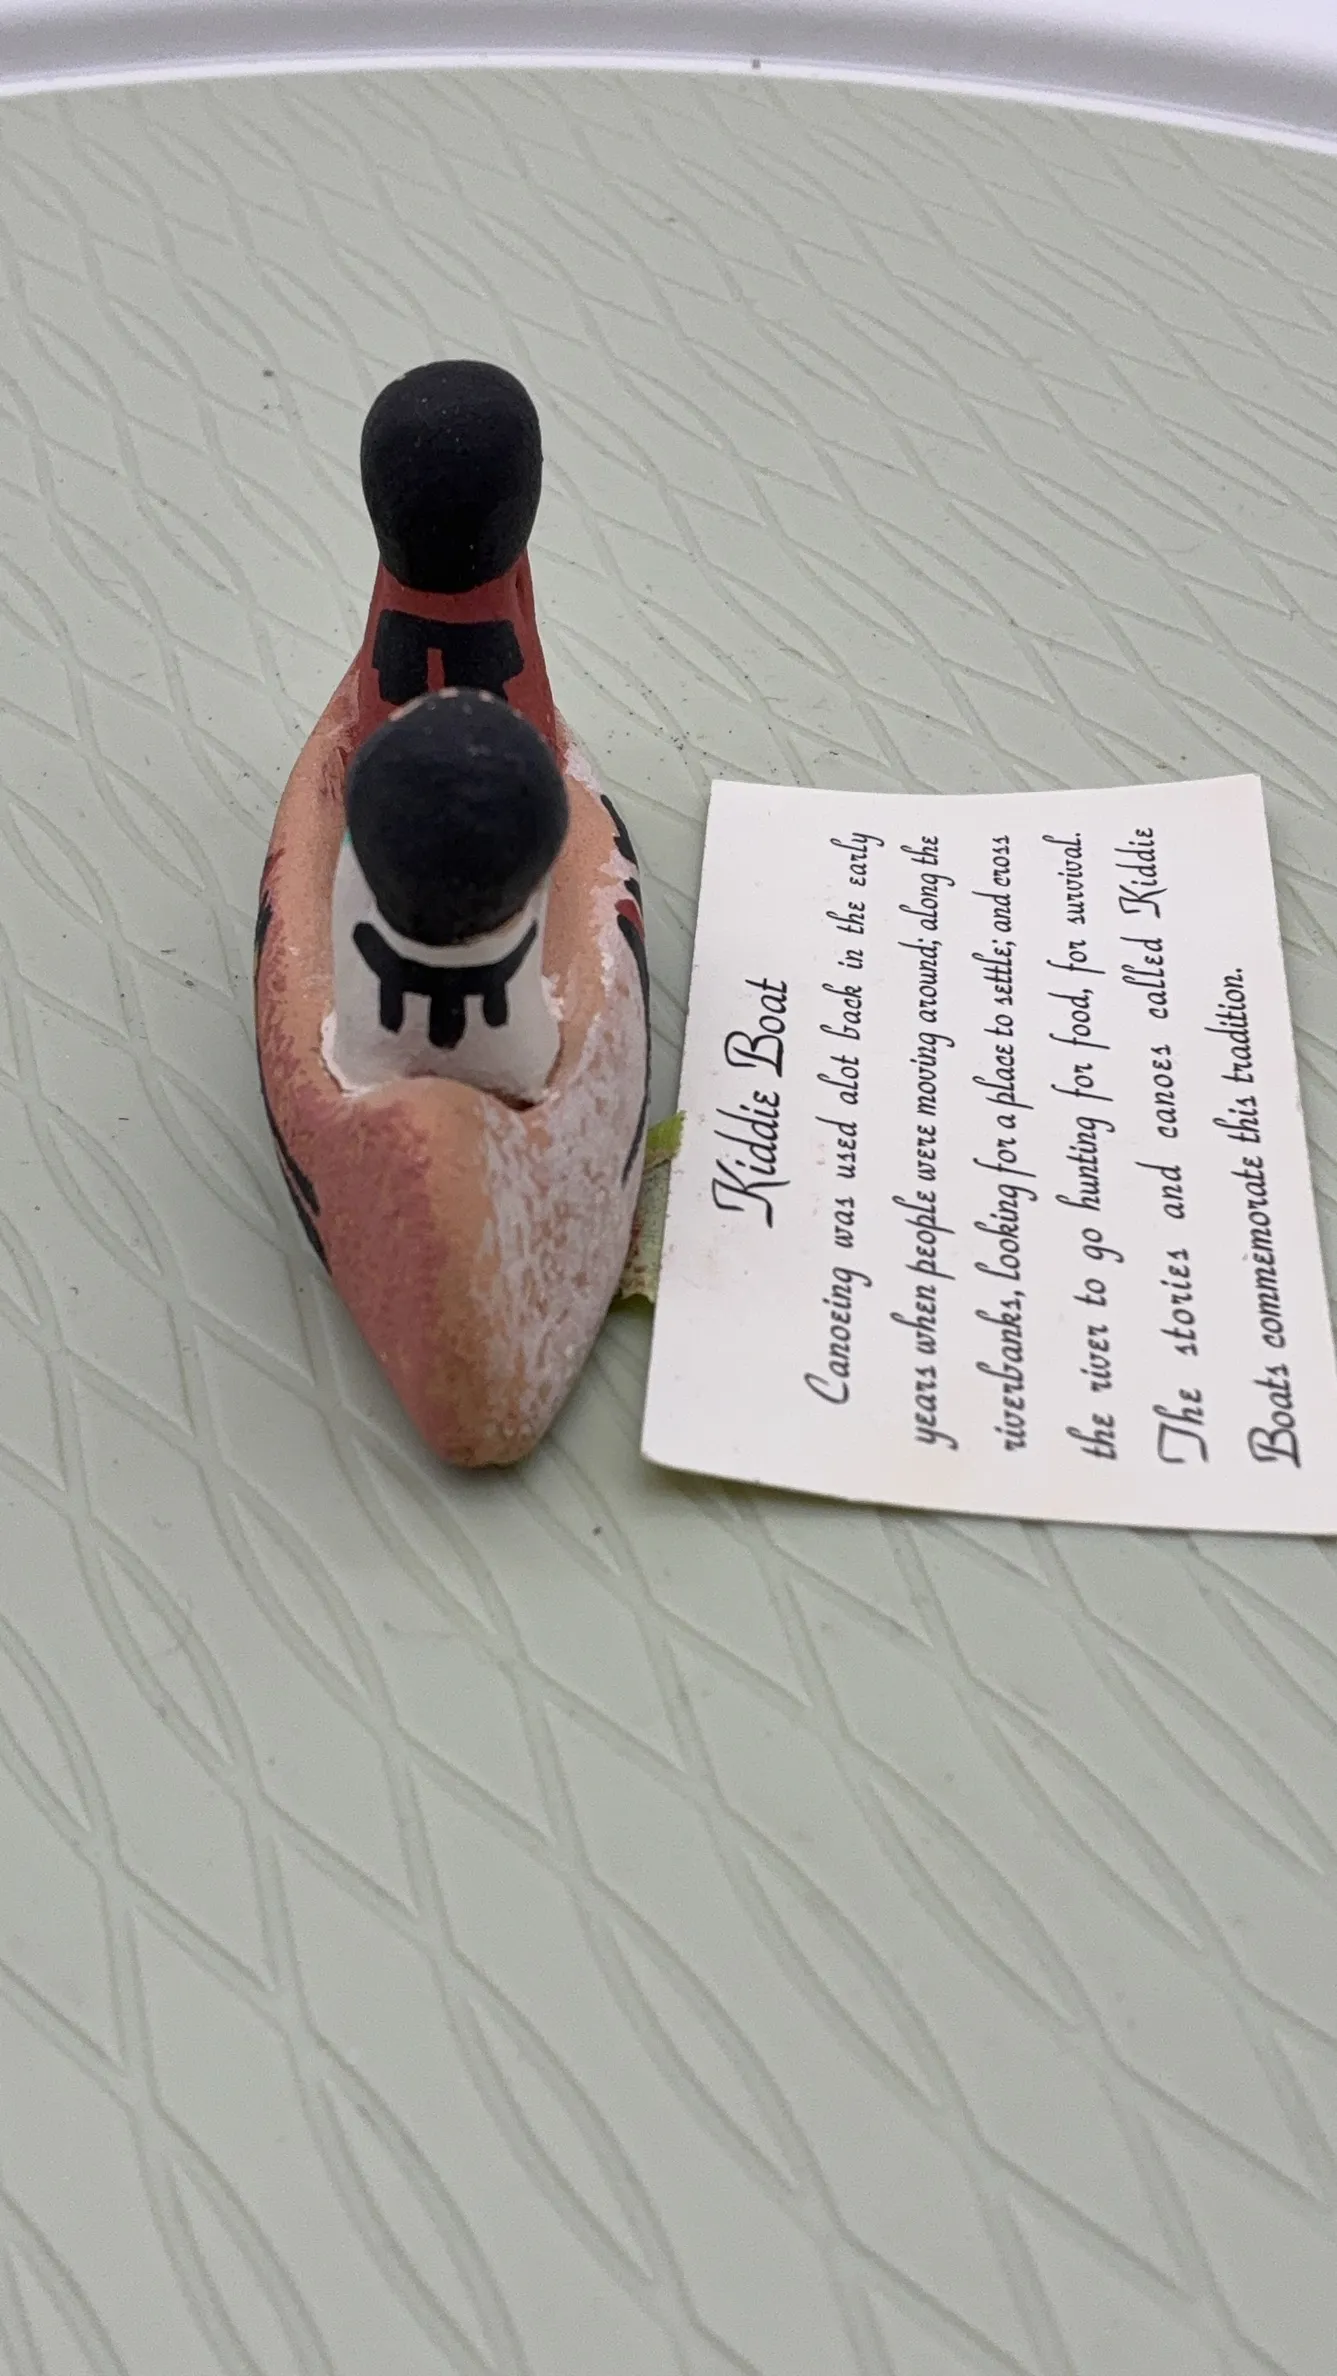 Kiddie Boat
Canoeing was used alot back in the early
years when people were moving around; along the
riverbanks, looking for a place to settle; and cross
the river to go hunting for food, for survival.
The stories and canoes called Kiddie
Boats commemorate this tradition.